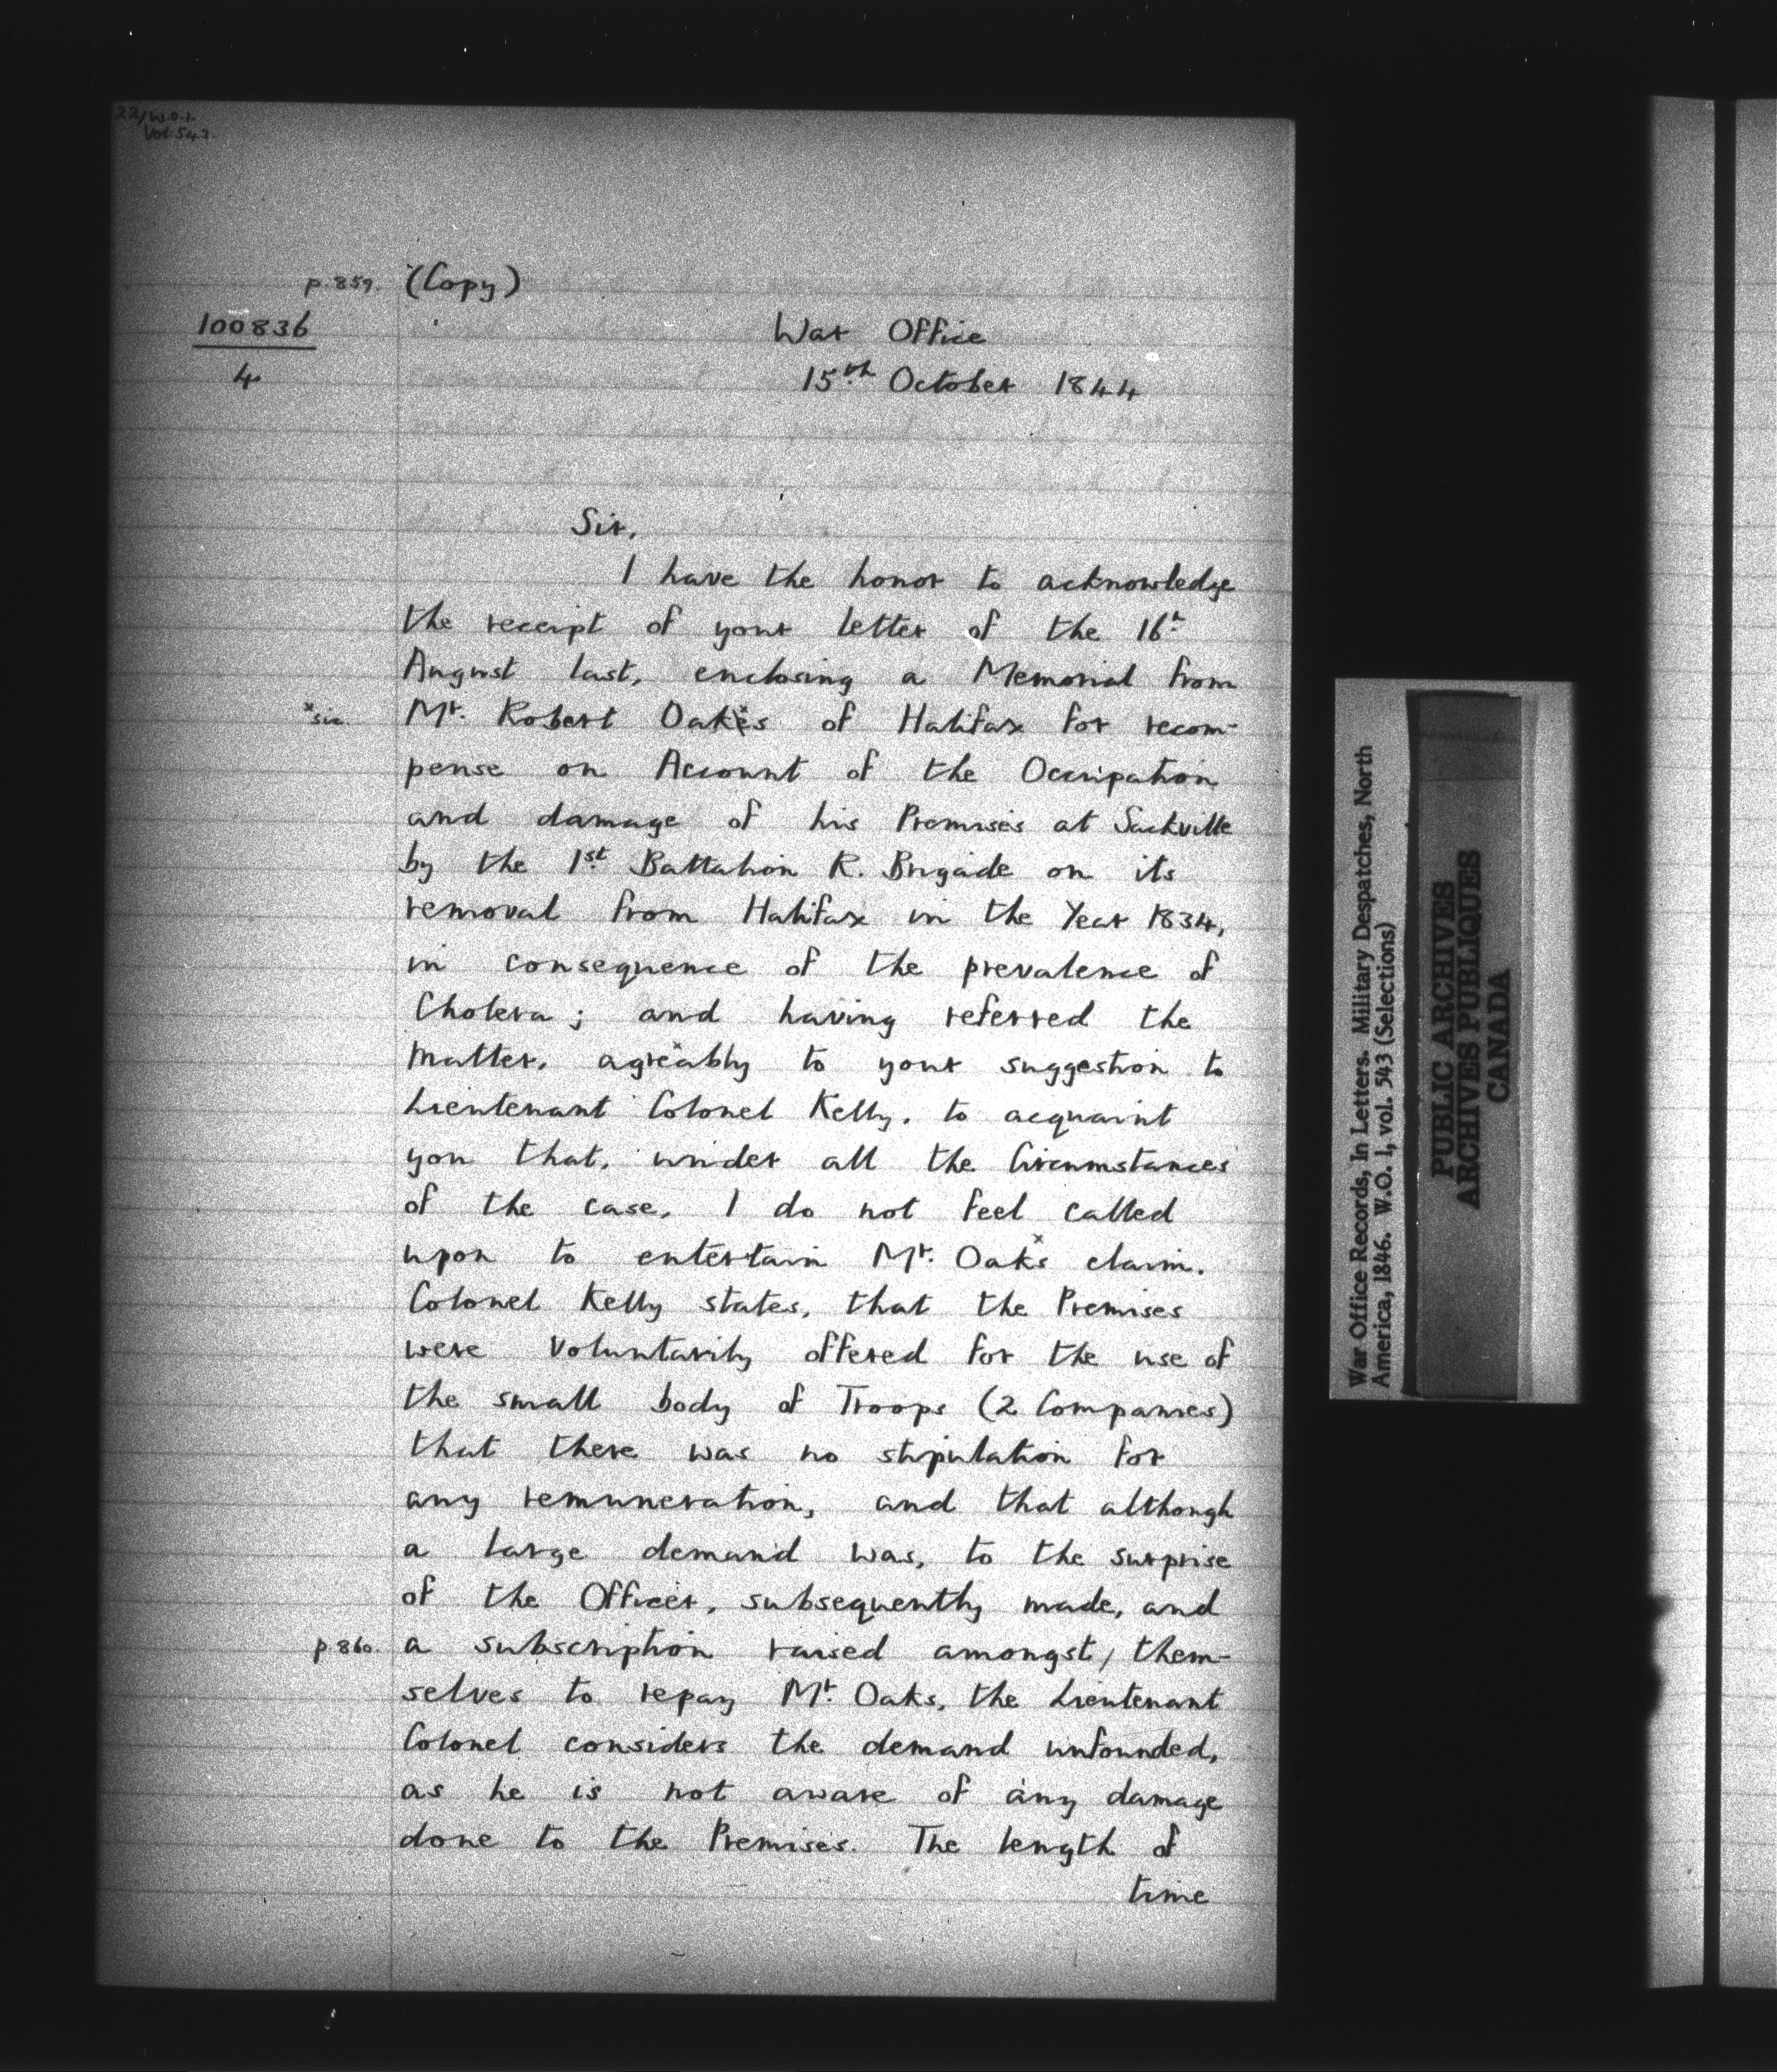 22/W.O.1.
Vol. 543.
p. 859. (Copy)
100836
4
War Office
15th October 1844
Sir,
I have the honor to acknowledge
the receipt of your letter of the 16th
August last, enclosing a Memorial from
*sic. Mr. Robert Oakes of Halifax for recom-
pense on Account of the Occupation
and damage of his Premises at Sackville
by the 1st Battalion R. Brigade on its
removal from Halifax in the Year 1834,
in consequence of the prevalence of
Cholera; and having referred the
Matter, agreably to your suggestion to
Lieutenant Colonel Kelly, to acquaint
you that, under all the Circumstances
of the case, I do not feel called
upon to entertain Mr. Oak's claim.
Colonel Kelly states, that the Premises
were Voluntarily offered for the use of
the small body of Troops (2 Companies)
that there was no stipulation for
any remuneration, and that although
a large demand was, to the surprise
of the Officer, subsequently made, and
p. 860. a subscription raised amongst / them-
selves to repay Mr. Oaks, the Lieutenant
Colonel considers the demand unfounded,
as he is not aware of any damage
done to the Premises. The length of
time
War Office Records, In Letters. Military Despatches, North
America, 1846. W.O. 1, vol. 543 (Selections)
PUBLIC ARCHIVES
ARCHIVES PUBLIQUES
CANADA